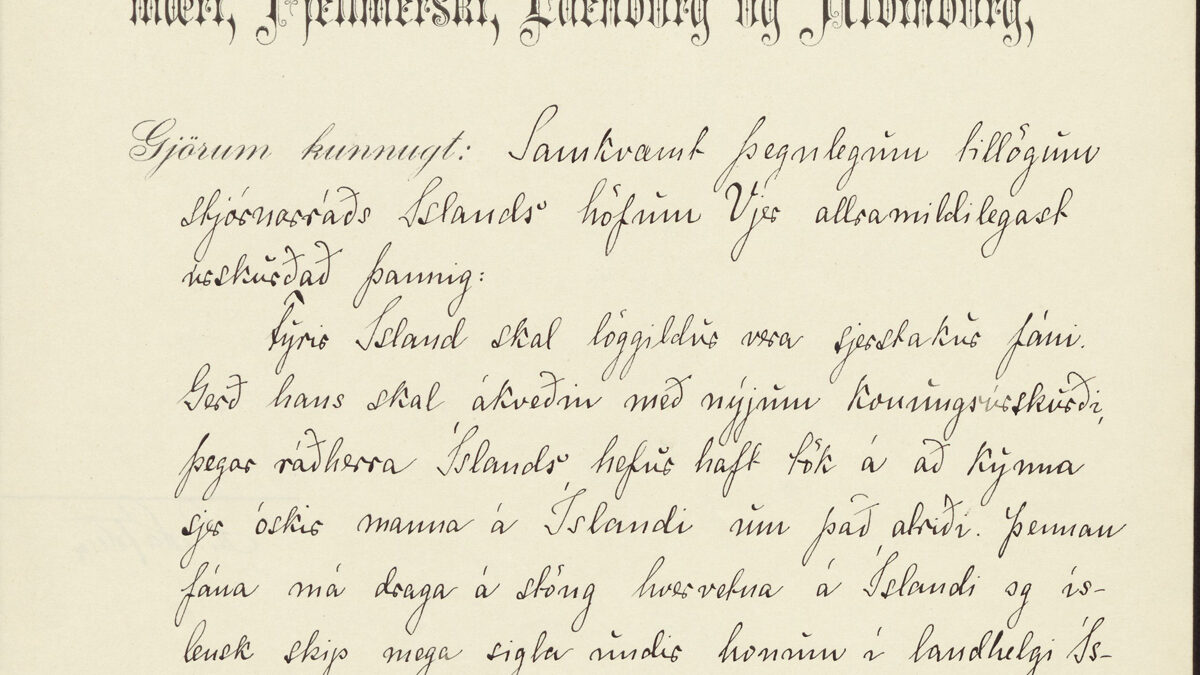 mæri, Þjettmerski, Láenborg og Aldinborg,
Gjörum kunnugt: Samkvæmt þegnlegum tillögum
stjórnarráðs Íslands höfum Vjer allramildilegast
úrskurðað þannig:
Fyrir Ísland skal löggildur vera sjerstakur fáni.
Gerð hans skal ákveðin með nýjum konungsúrskurði,
þegar ráðherra Íslands hefur haft tök á að kynna
sjer óskir manna á Íslandi um það atriði. Þennan
fána má draga á stöng hvervetna á Íslandi og ís-
lensk skip mega sigla undir honum í landhelgi Ís-